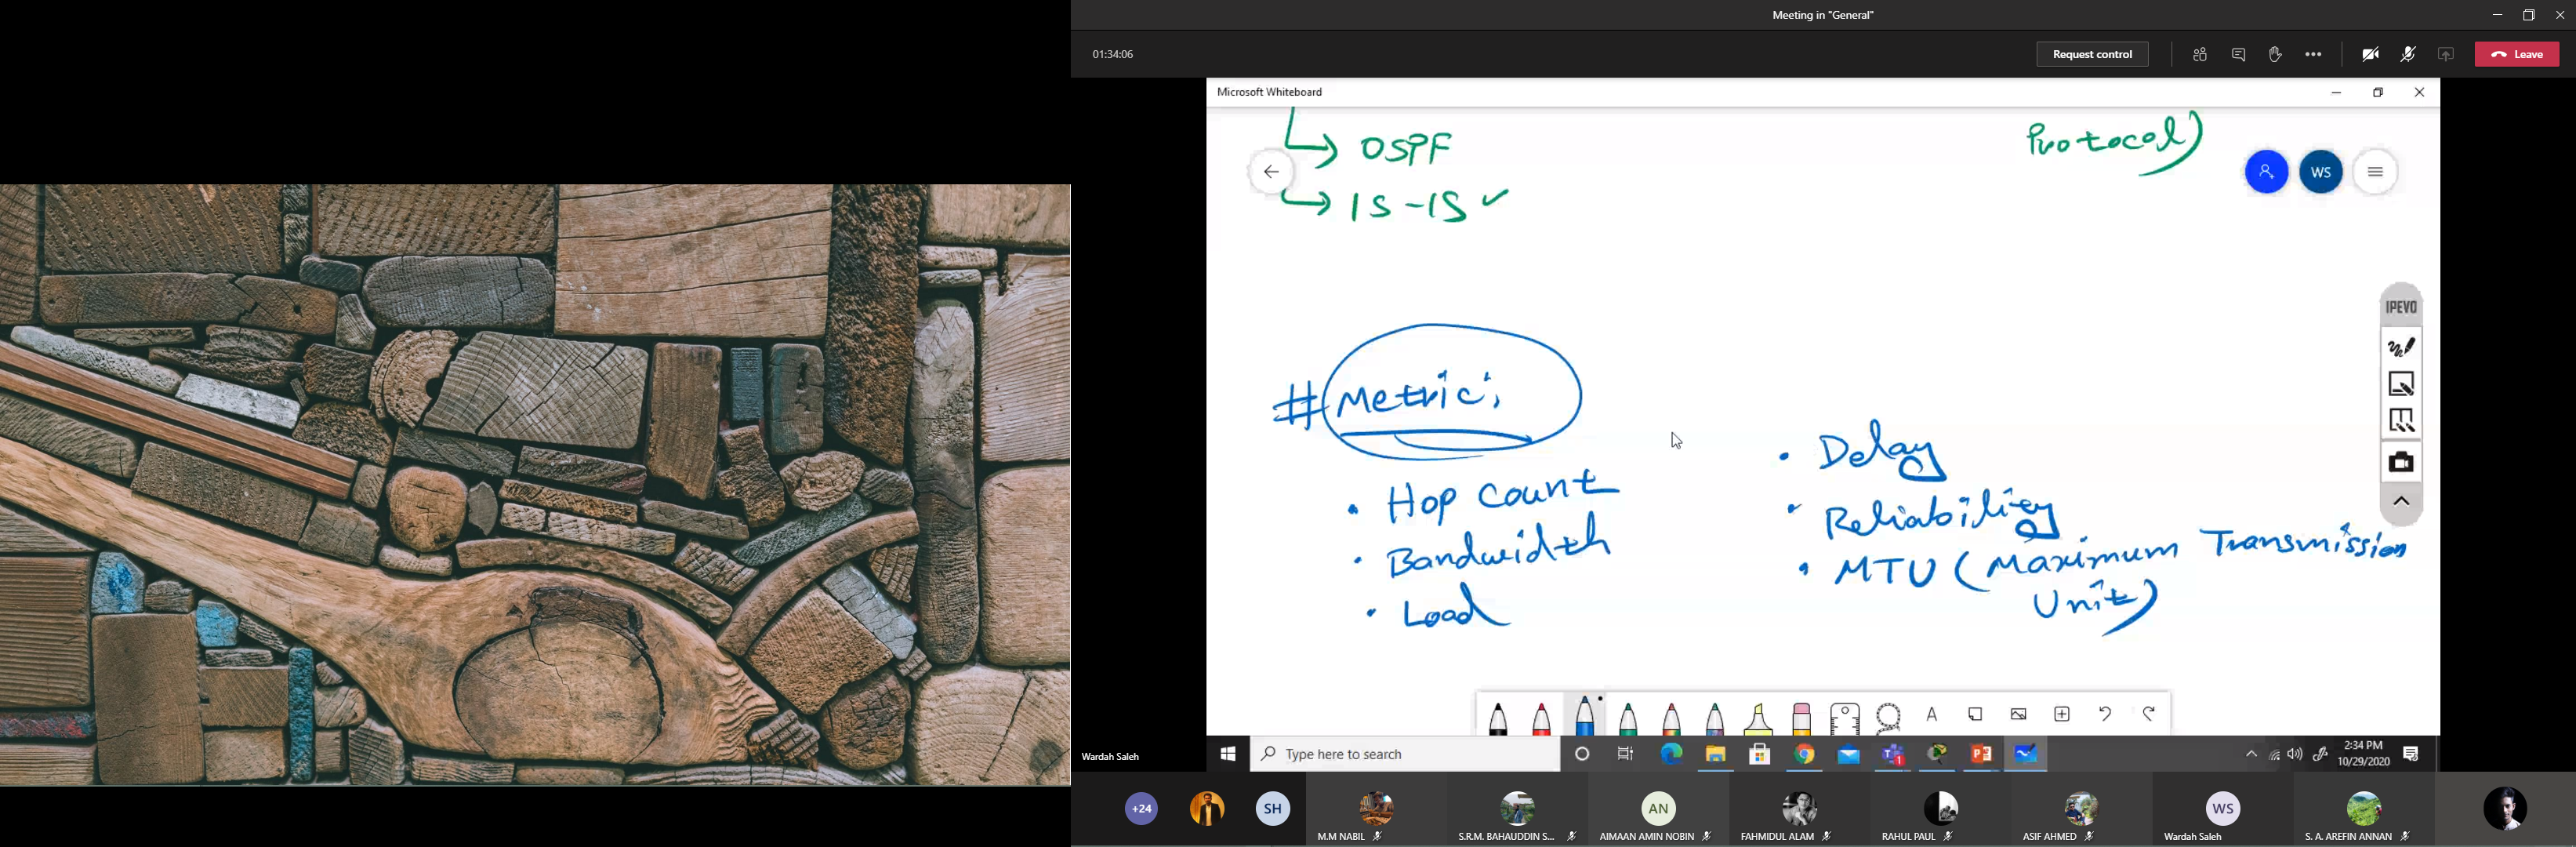 Meeting in "General"
01:34:06
Request control
Leave
Microsoft Whiteboard
OSPF
IS-IS
Protocol)
WS
IPEVO
# Metric:
• Hop Count
• Bandwidth
• Load
• Delay
• Reliability
• MTU (Maximum Transmission
Unit)
Wardah Saleh
Type here to search
2:34 PM
10/29/2020
+24
SH
M.M NABIL
S.R.M. BAHAUDDIN S...
AN
AIMAAN AMIN NOBIN
FAHMIDUL ALAM
RAHUL PAUL
ASIF AHMED
WS
Wardah Saleh
S. A. AREFIN ANNAN